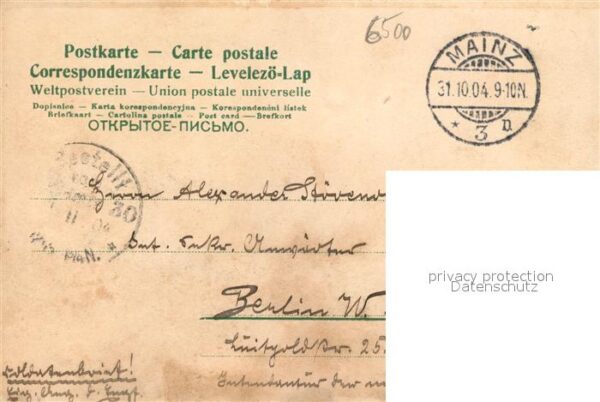 6500
Postkarte — Carte postale
Correspondenzkarte — Levelező-Lap
Weltpostverein — Union postale universelle
Dopisnice — Karta korespondencyjna — Korespondenční lístek
Briefkaart — Cartolina postale — Post card — Brefkort
ОТКРЫТОЕ-ПИСЬМО.
MAINZ
31.10.04.9-10N.
* 3 n
Bestellt
30
11 04
N.
Herrn Alexander
Int. Sekr. Anwärter
Berlin W.
Luitpold Str. 25.
Intendantur der
Soldatenbrief!
Eig. Ang. d. Empf.
privacy protection
Datenschutz